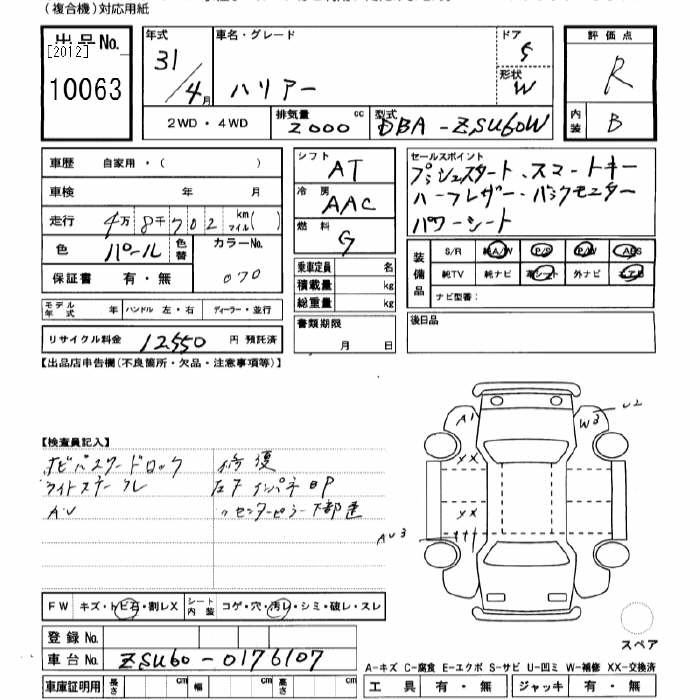 (複合機)対応用紙
出品No.
[2012]
10063
年式 31/4月
車名・グレード ハリアー
ドア 5
形状 W
2WD・4WD
排気量 2000 cc
型式 DBA-ZSU60W
評価点 R
内装 B
車歴 自家用・( )
車検 年 月
走行 4万8千702 km マイル( )
色 パール 色替
カラーNo. 070
保証書 有・無
モデル年式 年 ハンドル 左・右 ディーラー・並行
リサイクル料金 12,550 円 預託済
シフト AT
冷房 AAC
燃料 G
乗車定員 名
積載量 kg
総重量 kg
書類期限
月 日
セールスポイント
プッシュスタート・スマートキー
ハーフレザー・バックモニター
パワーシート
装備品
S/R 純A/W P/S P/W ABS
純TV 純ナビ 革シート 外ナビ エアB
ナビ型番:
後日品
【出品店申告欄(不良箇所・欠品・注意事項等)】
【検査員記入】
修復
AU
A1
W3
U2
XX
XX
AU3
FW キズ・トビ石・割レX
シート内装 コゲ・穴・汚レ・シミ・破レ・スレ
登録No.
車台No. ZSU60-0176107
車庫証明用 長さ cm 幅 cm 高さ cm
スペア
A-キズ C-腐食 E-エクボ S-サビ U-凹ミ W-補修 XX-交換済
工具 有・無 ジャッキ 有・無